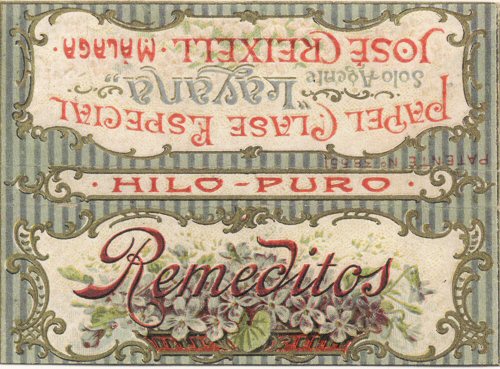 PAPEL CLASE ESPECIAL
"Layana"
Solo Agente
JOSÉ CREIXELL · MALAGA ·
PATENTE Nº
· HILO-PURO ·
Remeditos